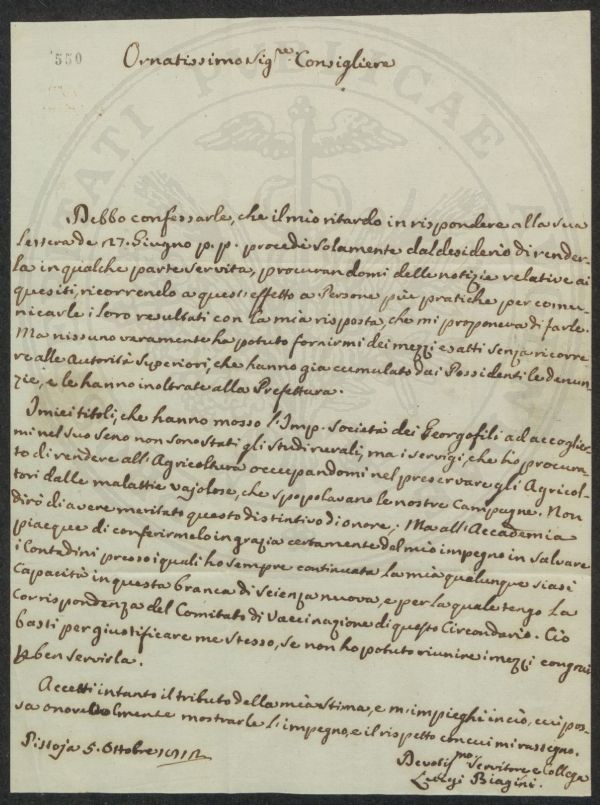 550
Ornatissimo Sig.re Consigliere
Debbo confessarle, che il mio ritardo in rispondere alla sua
Lettera de 27. Giugno p. p. procedè solamente dal desiderio di render-
la in qualche parte servita, procurandomi delle notizie relative ai
quesiti, ricorrendo a quest'effetto a Persone più pratiche per comu-
nicarle i loro resultati con la mia risposta, che mi proponeva di farle.
Ma nissuno veramente ha potuto fornirmi dei mezzi esatti senza ricorre
re alle Autorità Superiori, che hanno già cumulato dai Possidenti le denun-
zie, e le hanno inoltrate alla Prefettura.
I miei titoli, che hanno mosso l'Imp. Società dei Georgofili ad accoglier-
mi nel suo seno non sono stati gli studi rurali, ma i servigi, che ho procura-
to di rendere all'Agricoltura occupandomi nel preservare gli Agricol-
tori dalle malattie vajolose, che spopolavano le nostre Campagne. Non
dirò di avere meritato questo distintivo di onore; Ma all'Accademia
piacque di conferirmelo in grazia certamente del mio impegno in salvare
i Contadini presso i quali ho sempre continuata la mia qualunque siasi
Capacità in questa branca di Scienza nuova, e per la quale tengo la
Corrispondenza del Comitato di Vaccinazione di questo Circondario. Ciò
basti per giustificare me stesso, se non ho potuto riunire i mezzi congrui
ben servirla.
Accetti intanto il tributo della mia stima, e m'impieghi in ciò, cui pos-
sa onorevolmente mostrarle l'impegno, e il rispetto con cui mi rassegno.
Pistoja 5. Ottobre
Devotis.mo Servitore e Collega
Luigi Biagini.
PUBLICAE